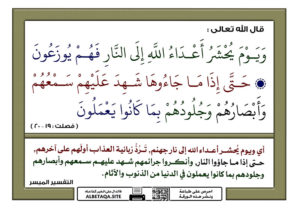 قال الله تعالى :
وَيَوْمَ يُحْشَرُ أَعْدَاءُ اللَّهِ إِلَى النَّارِ فَهُمْ يُوزَعُونَ
حَتَّىٰ إِذَا مَا جَاءُوهَا شَهِدَ عَلَيْهِمْ سَمْعُهُمْ
وَأَبْصَارُهُمْ وَجُلُودُهُمْ بِمَا كَانُوا يَعْمَلُونَ
( فصلت : ١٩ - ٢٠ )
أي ويوم يُحشر أعداء الله إلى نار جهنم، تَرُدُّ زبانية العذاب أولَهم على آخرهم،
حتى إذا ما جاؤوا النار وأنكروا جرائمهم شهد عليهم سمعهم وأبصارهم
وجلودهم بما كانوا يعملون في الدنيا من الذنوب والآثام.
التفسير الميسر
احرص على طباعة
ونشر هذه الورقة
ALBETAQA.SITE